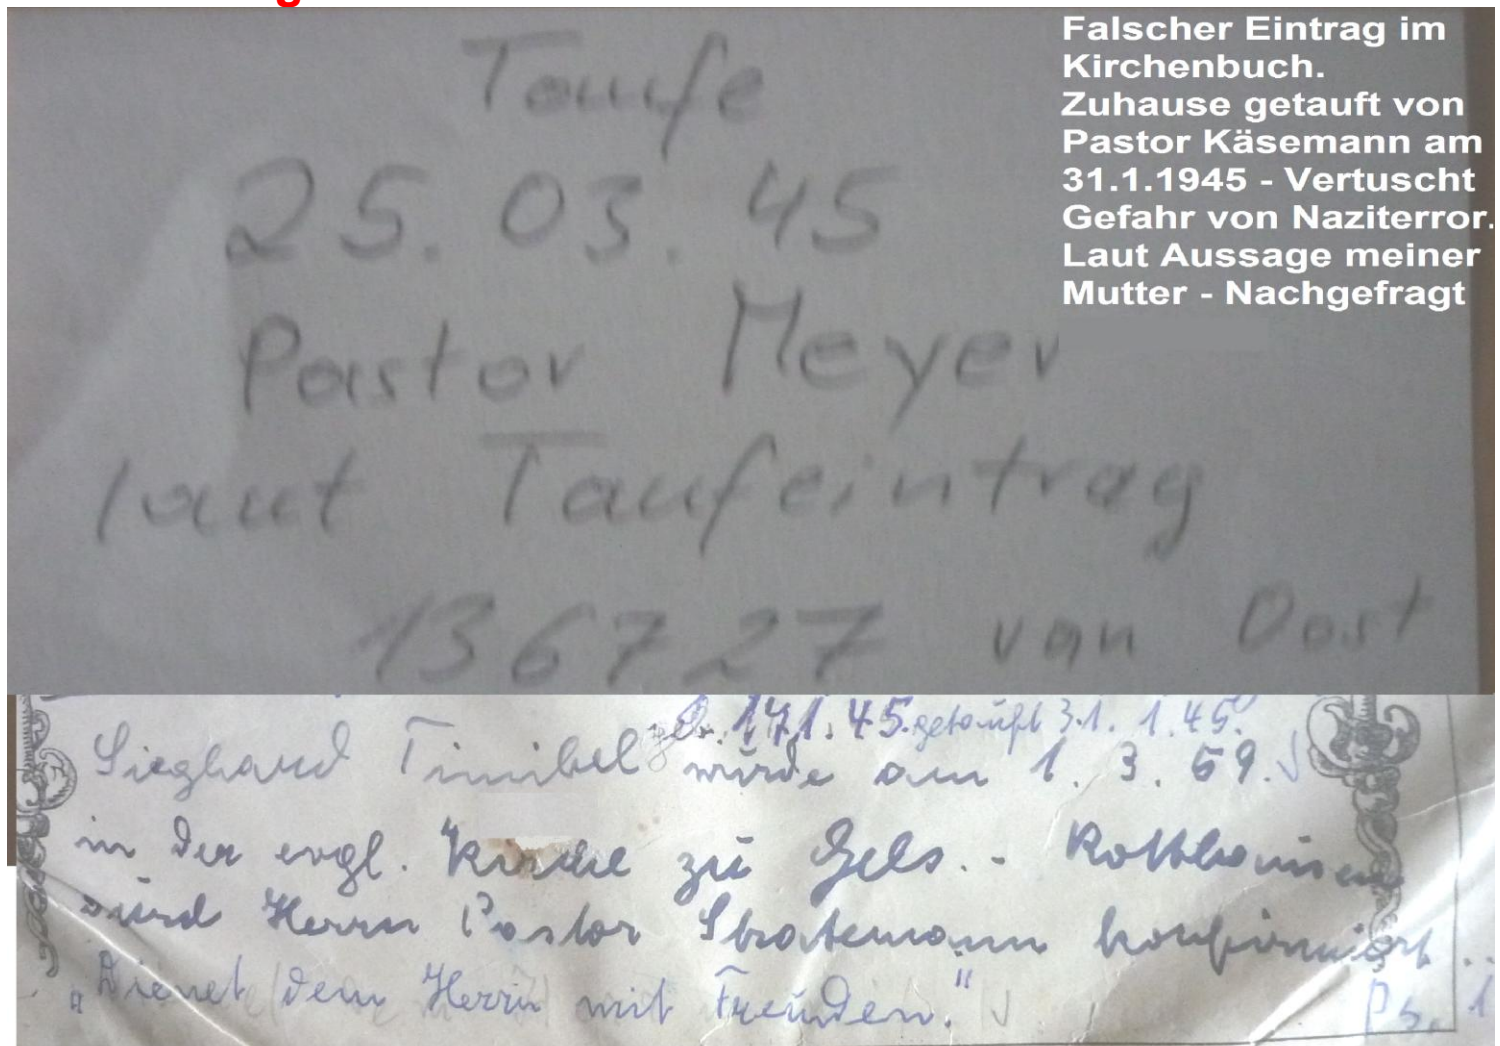 Falscher Eintrag im
Kirchenbuch.
Zuhause getauft von
Pastor Käsemann am
31.1.1945 - Vertuscht
Gefahr von Naziterror.
Laut Aussage meiner
Mutter - Nachgefragt
Taufe
25. 03. 45
Pastor Meyer
laut Taufeintrag
136727 van Oost
getauft 31. 1. 45.
wurde am 1. 3. 59.
in der evgl. Kirche zu Gels. - Rotthausen
Herrn Pastor Stratemann konfirmiert..
"Dienet dem Herrn mit Freuden." Ps. 1